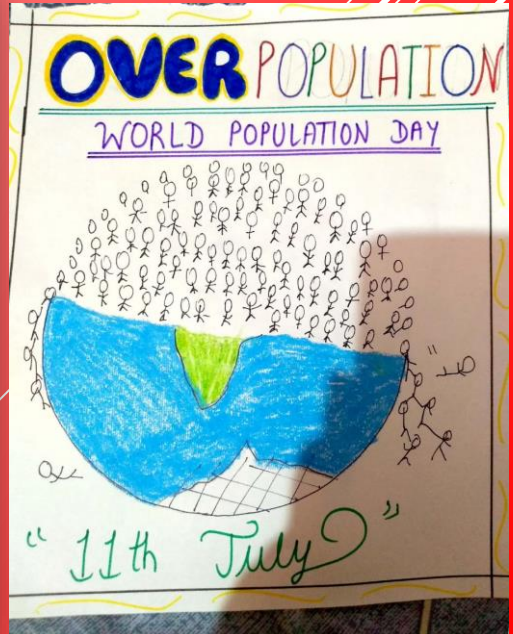 OVERPOPULATION
WORLD POPULATION DAY
"11th July"